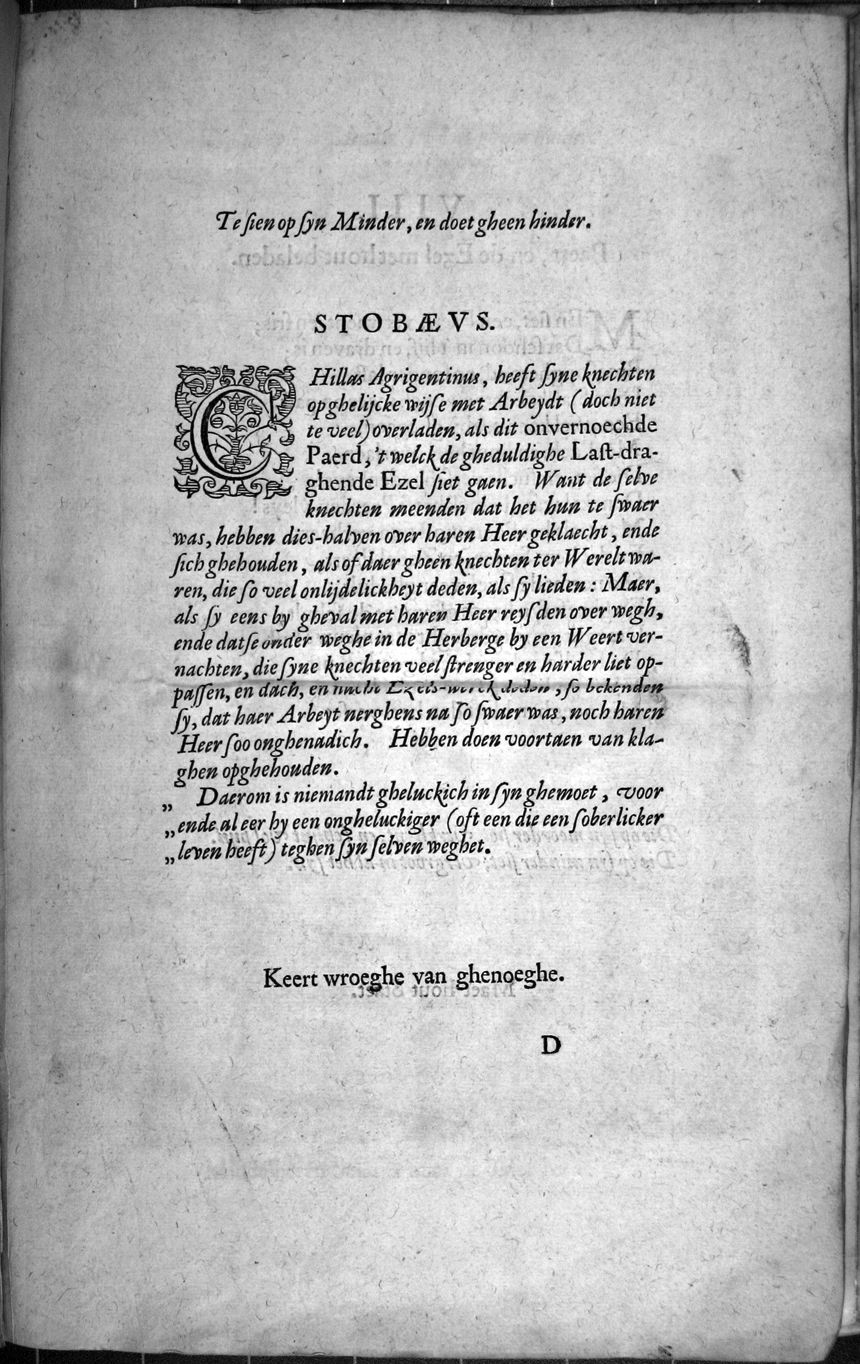 Te ſien op ſyn Minder, en doet gheen hinder.
STOBÆVS.
CHillas Agrigentinus, heeft ſyne knechten
op ghelijcke wijſe met Arbeydt (doch niet
te veel) overladen, als dit onvernoechde
Paerd, 't welck de gheduldighe Laſt-dra-
ghende Ezel ſiet gaen. Want de ſelve
knechten meenden dat het hun te ſwaer
was, hebben dies-halven over haren Heer geklaecht, ende
ſich ghehouden, als of daer gheen knechten ter Werelt wa-
ren, die ſo veel onlijdelickheyt deden, als ſy lieden: Maer,
als ſy eens by gheval met haren Heer reyſden over wegh,
ende datſe onder weghe in de Herberge by een Weert ver-
nachten, die ſyne knechten veel ſtrenger en harder liet op-
paſſen, en dach, en nacht Ezels-werck deden, ſo bekenden
ſy, dat haer Arbeyt nerghens na ſo ſwaer was, noch haren
Heer ſoo onghenadich. Hebben doen voortaen van kla-
ghen opghehouden.
„ Daerom is niemandt gheluckich in ſyn ghemoet, voor
„ ende al eer hy een ongheluckiger (oft een die een ſoberlicker
„ leven heeft) teghen ſyn ſelven weghet.
Keert wroeghe van ghenoeghe.
D